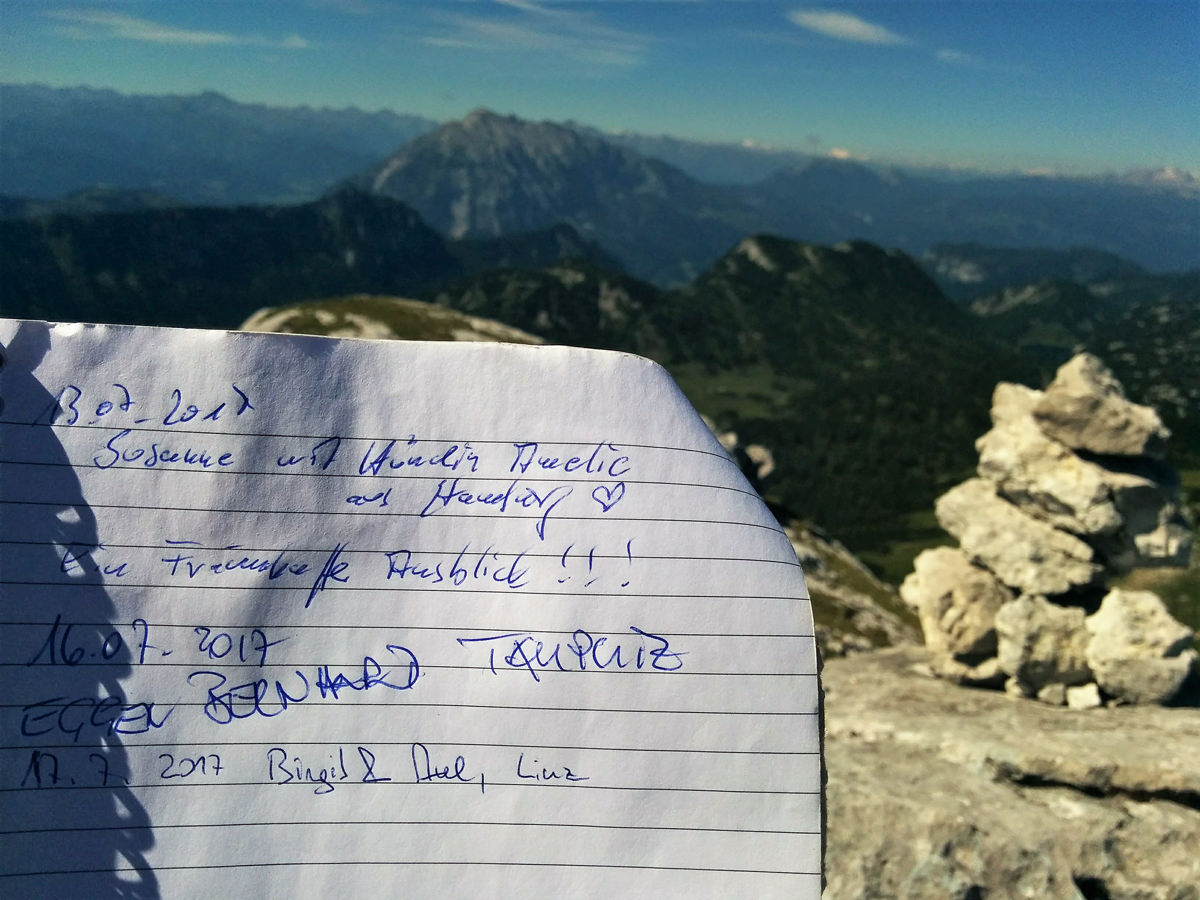 13.07.2017
Susanne mit Hündin Amelie
aus Hamburg ♡
Ein Traumhaffte Ausblick !!!
16.07.2017
EGGER BERNHARD TAUPLITZ
17.7.2017 Birgit & Axel, Linz